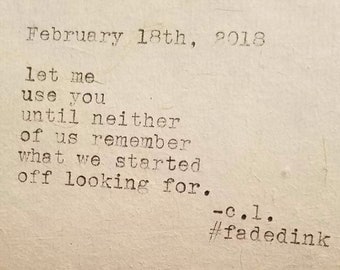 February 18th, 2018
let me
use you
until neither
of us remember
what we started
off looking for.
-c.l.
#fadedink